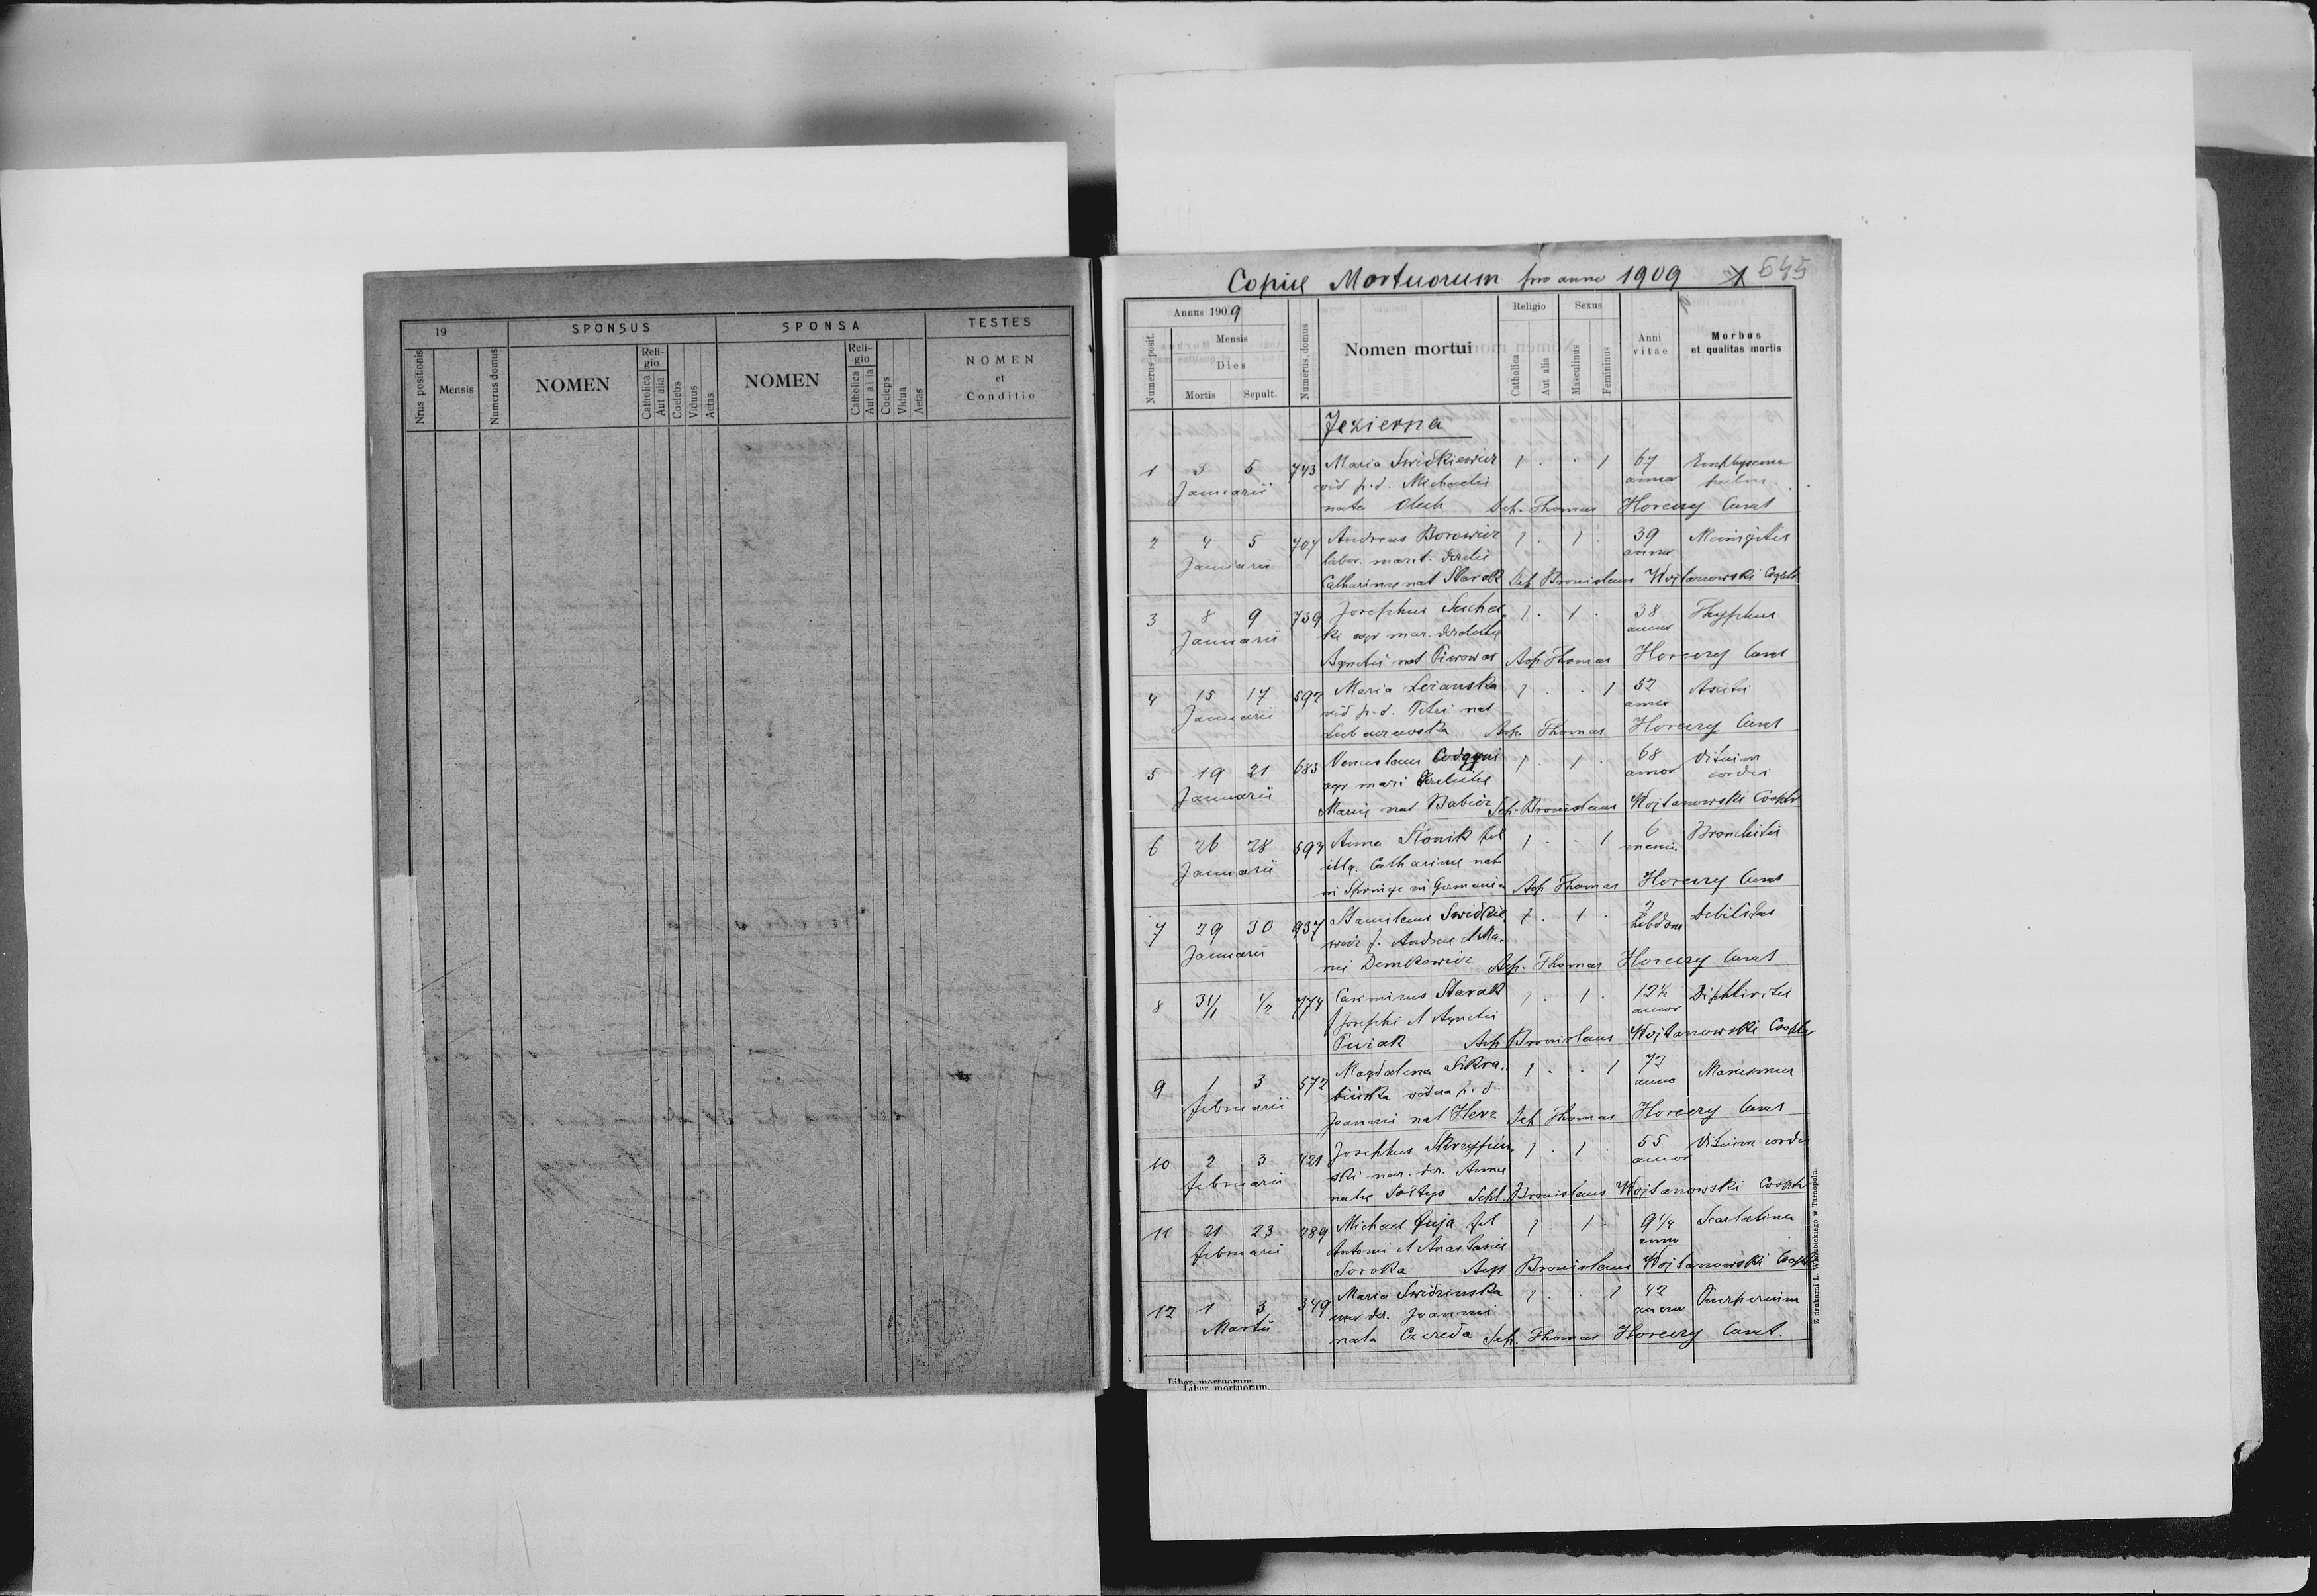 19
SPONSUS
SPONSA
TESTES
Nrus positionis
Mensis
Numerus domus
NOMEN
Reli-
gio
Catholica
Aut alia
Coelebs
Viduus
Aetas
NOMEN
Reli-
gio
Catholica
Aut alia
Coeleps
Vidua
Aetas
NOMEN
et
Conditio
Copiae Mortuorum pro anno 1909 1 645
Annus 1909
Numerus posit.
Mensis
Dies
Mortis Sepult.
Numerus domus
Nomen mortui
Religio
Catholica
Aut alia
Sexus
Masculinus
Femininus
Anni
vitae
Morbus
et qualitas mortis
Jezierna
1 3 5 743 Maria Swidkiewicz 1 . . 1 67 Emphysema
Januarii vid p.d. Michaelis annor pulm.
nata Olech Sep. Thomas Horeczy Curat
2 4 5 707 Andreas Borowicz 1 . 1 . 39 Meningitis
Januarii labor. marit. derelic annor
Catharinae nat Starak Sep Bronislaus Wojtanowski Cooptr
3 8 9 739 Josephus Suchec 1 . 1 . 38 Thyphus
Januarii ki agr mar. derelictae annor
Agnetis nat Piwowar Sep Thomas Horeczy Curat
4 15 17 592 Maria Lezanska 1 . . 1 52 Ascites
Januarii vid p.d. Petri nat annor
Sep. Thomas Horeczy Curat
5 19 21 683 Venceslaus 1 . 1 . 68 Vitium
Januarii agr mari derelictae annor cordis
Mariae nat Babicz Sep. Bronislaus Wojtanowski Cooptr
6 26 28 593 Anna Slowik fil 1 . . 1 6 Bronchitis
Januarii illg. Catharinae nata mensis
in Germania Sep Thomas Horeczy Curat
7 29 30 937 Stanislaus Swidkie 1 . 1 . 2 Debilitas
Januarii wicz f. Andreae et Ma- hebdom
riae Demkowicz Sep. Thomas Horeczy Curat
8 31/1 1/2 774 Casimirus Starak 1 . 1 . 12½ Diphtiritis
f Josephi et Agnetis annor
Puziak Sep Bronislaus Wojtanowski Cooptr
9 1 3 572 Magdalena Skra- 1 . . 1 72 Marasmus
februarii binska vidua p.d. annor
Joannis nat Herz Sep Thomas Horeczy Curat
10 2 3 421 Josephus Skrzypin 1 . 1 . 55 Vitium cordis
februarii ski mar. der. Annae annor
natae Soltys Sepl. Bronislaus Wojtanowski Cooptr
11 21 23 789 Michael Guja fil 1 . 1 . 9¼ Scarlatina
februarii Antonii et Anastasiae annor
Soroka Sep Bronislaus Wojtanowski Cooptr
12 1 3 349 Maria Swidzinska 1 . . 1 42 Puerperium
Martii uxor der. Joannis annor
nata Czereda Sep. Thomas Horeczy Curat.
Z drukarni L. Wierzbickiego w Tarnopolu.
Liber mortuorum.
Liber mortuorum.